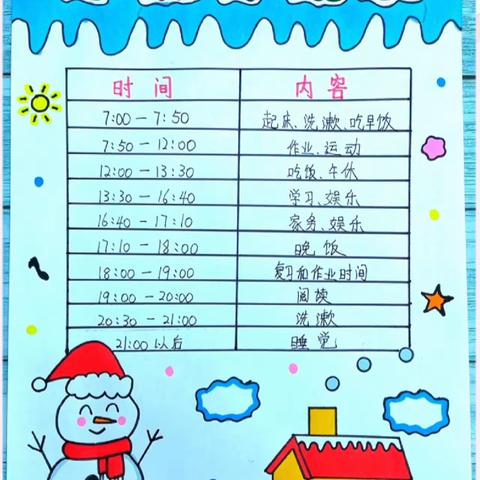 时间 内容
7:00－7:50 起床、洗漱、吃早饭
7:50－12:00 作业、运动
12:00－13:30 吃饭、午休
13:30－16:40 学习、娱乐
16:40－17:10 家务、娱乐
17:10－18:00 晚饭
18:00－19:00 复习和作业时间
19:00－20:00 阅读
20:30－21:00 洗漱
21:00以后 睡觉